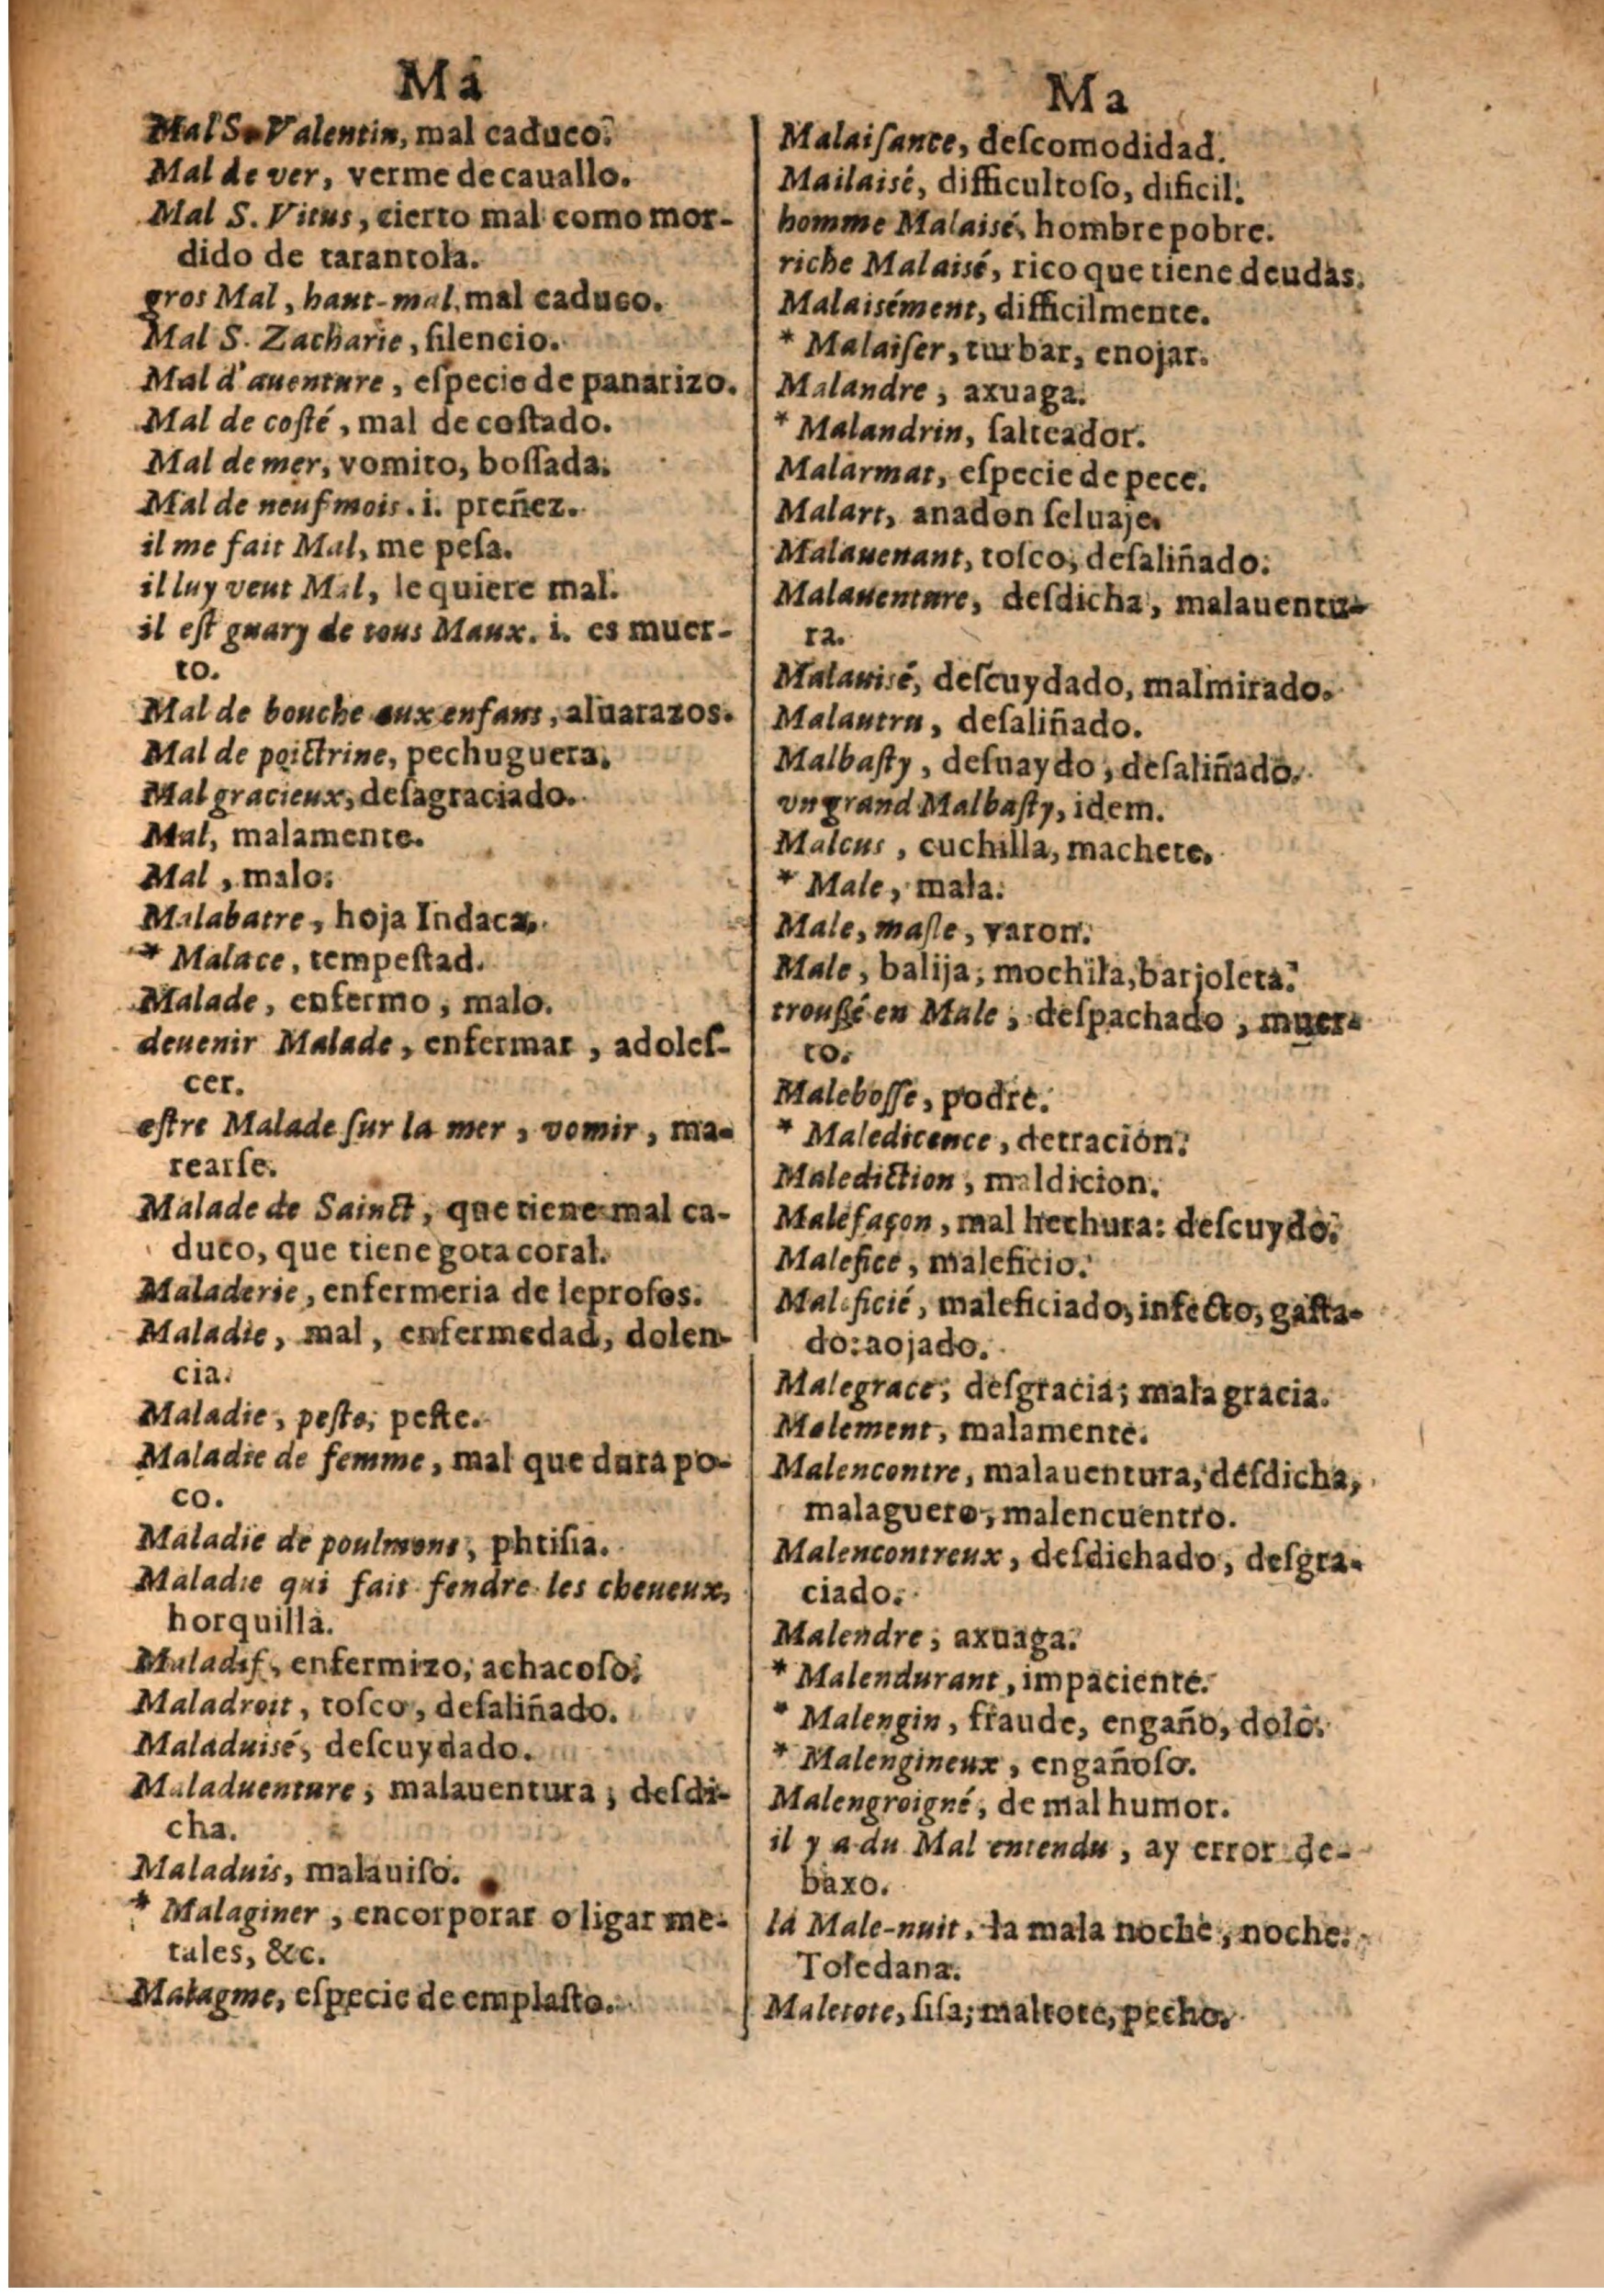 Ma
Mal S. Valentin, mal caduco.
Mal de ver, verme de cauallo.
Mal S. Vitus, cierto mal como mor-
dido de tarantola.
gros Mal, haut-mal, mal caduco.
Mal S. Zacharie, ſilencio.
Mal d'auenture, eſpecie de panarizo.
Mal de coſté, mal de coſtado.
Mal de mer, vomito, boſſada.
Mal de neuf mois. i. preñez.
il me fait Mal, me peſa.
il luy veut Mal, le quiere mal.
il eſt guary de tous Maux. i. es muer-
to.
Mal de bouche aux enfans, aluarazos.
Mal de poictrine, pechuguera.
Mal gracieux, deſagraciado.
Mal, malamente.
Mal, malo.
Malabatre, hoja Indaca.
* Malace, tempeſtad.
Malade, enfermo, malo.
deuenir Malade, enfermar, adoleſ-
cer.
eſtre Malade ſur la mer, vomir, ma-
rearſe.
Malade de Sainct, que tiene mal ca-
duco, que tiene gota coral.
Maladerie, enfermeria de leproſos.
Maladie, mal, enfermedad, dolen-
cia.
Maladie, peſte, peſte.
Maladie de femme, mal que dura po-
co.
Maladie de poulmons, phtiſia.
Maladie qui fait fendre les cheueux,
horquilla.
Maladif, enfermizo, achacoſo.
Maladroit, toſco, deſaliñado.
Maladuisé, deſcuydado.
Maladuenture, malauentura, deſdi-
cha.
Maladuis, malauiſo.
* Malaginer, encorporar o ligar me-
tales, &c.
Malagme, eſpecie de emplaſto.
Ma
Malaiſance, deſcomodidad.
Mailaisé, difficultoſo, dificil.
homme Malaisé, hombre pobre.
riche Malaisé, rico que tiene deudas.
Malaisément, difficilmente.
* Malaiſer, turbar, enojar.
Malandre, axuaga.
* Malandrin, ſalteador.
Malarmat, eſpecie de pece.
Malart, anadon ſeluaje.
Malauenant, toſco, deſaliñado.
Malauenture, deſdicha, malauentu-
ra.
Malauisé, deſcuydado, malmirado.
Malautru, deſaliñado.
Malbaſty, deſuaydo, deſaliñado.
vn grand Malbaſty, idem.
Malcus, cuchilla, machete.
* Male, mala.
Male, maſle, varon.
Male, balija, mochila, barjoleta.
trouſſé en Male, deſpachado, muer-
to.
Maleboſſe, podre.
* Maledicence, detracion.
Malediction, maldicion.
Malefaçon, mal hechura: deſcuydo.
Malefice, maleficio.
Maleficié, maleficiado, infecto, gaſta-
do: aojado.
Malegrace, deſgracia, mala gracia.
Malement, malamente.
Malencontre, malauentura, deſdicha,
malaguero, malencuentro.
Malencontreux, deſdichado, deſgra-
ciado.
Malendre, axuaga.
* Malendurant, impaciente.
* Malengin, fraude, engaño, dolo.
* Malengineux, engañoſo.
Malengroigné, de mal humor.
il y a du Mal entendu, ay error de-
baxo.
la Male-nuit, la mala noche, noche
Toledana.
Maletote, ſiſa, maltote, pecho.